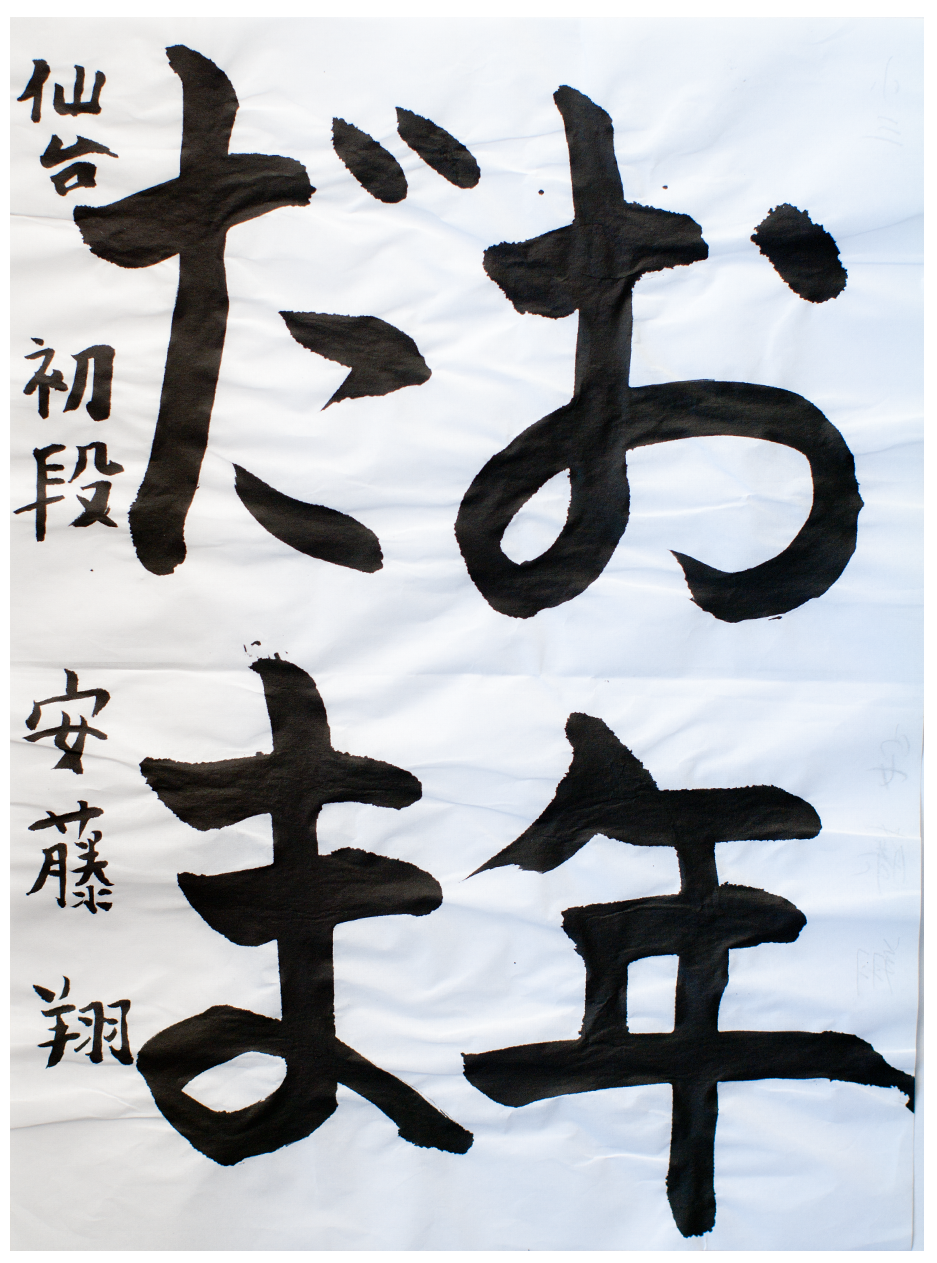 お年
だま
仙台 初段 安藤 翔